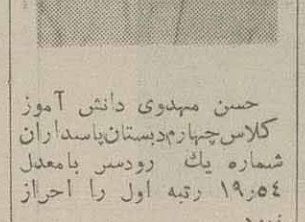 حسن مهدوی دانش آموز
کلاس چهارم دبستان پاسداران
شماره یك رودسر بامعدل
۱۹ر٥٤ رتبه اول را احراز